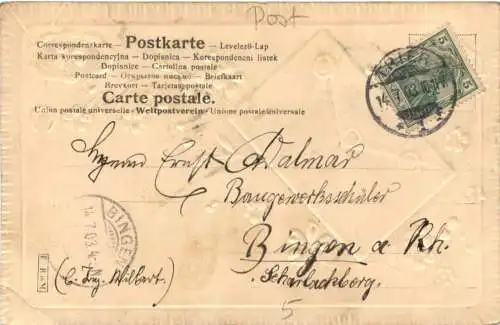 Post
Correspondenzkarte – Postkarte – Levelező-Lap
Karta korespondencyjna – Dopisnica – Korespondenční listek
Dopisnice – Cartolina postale
Postcard – Открытое письмо – Briefkaart
Brevkort – Tarjetaspostale
Carte postale.
Union postale universelle – Weltpostverein – Unione postale universale
5 5
14 7 03
Herrn Ernst Dalmar
Baugewerksschüler
Bingen a Rh.
Scharlachberg.
BINGEN
14.7.03.
(b. Ing. Wilbert.)
5